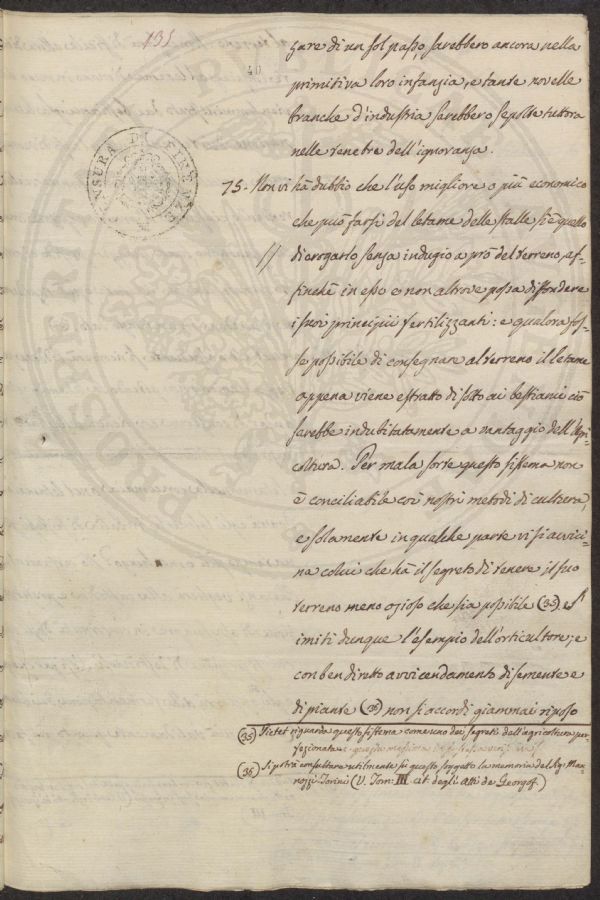 135
40
CENSURA DI FIRENZE
zare di un sol passo, sarebbero ancora nella
primitiva loro infanzia, e tante novelle
branche d'industria sarebbero sepolte tuttora
nelle tenebre dell'ignoranza.
75 - Non vi hà dubbio che l'uso migliore o più economico
che può farsi del letame delle stalle si è quello
// di erogarlo senza indugio a prò del terreno, af-
finchè in esso e non altrove possa diffondere
i suoi principii fertilizzanti: e qualora fos-
se possibile di consegnare al terreno il letame
appena viene estratto di sotto ai bestiami ciò
sarebbe indubitatamente a vantaggio dell'Agri
coltura. Per mala sorte questo sistema non
è conciliabile coi nostri metodi di cultura,
e solamente in qualche parte vi si avvici-
na colui che hà il segreto di tenere il suo
terreno meno ozioso che sia possibile (35). Si
imiti dunque l'esempio dell'orticultore; e
con ben diretto avvicendamento di semente e
di piante (36) non si accordi giammai riposo
(35) Pictet riguarda questo sistema come uno dei segreti dell'agricoltura per
fezionata
(36) Si potrà consultare utilmente su questo soggetto la memoria del Sig. Mar.
Tozzi Torini (V. Tom: III. cit. degli Atti de Georgof.)